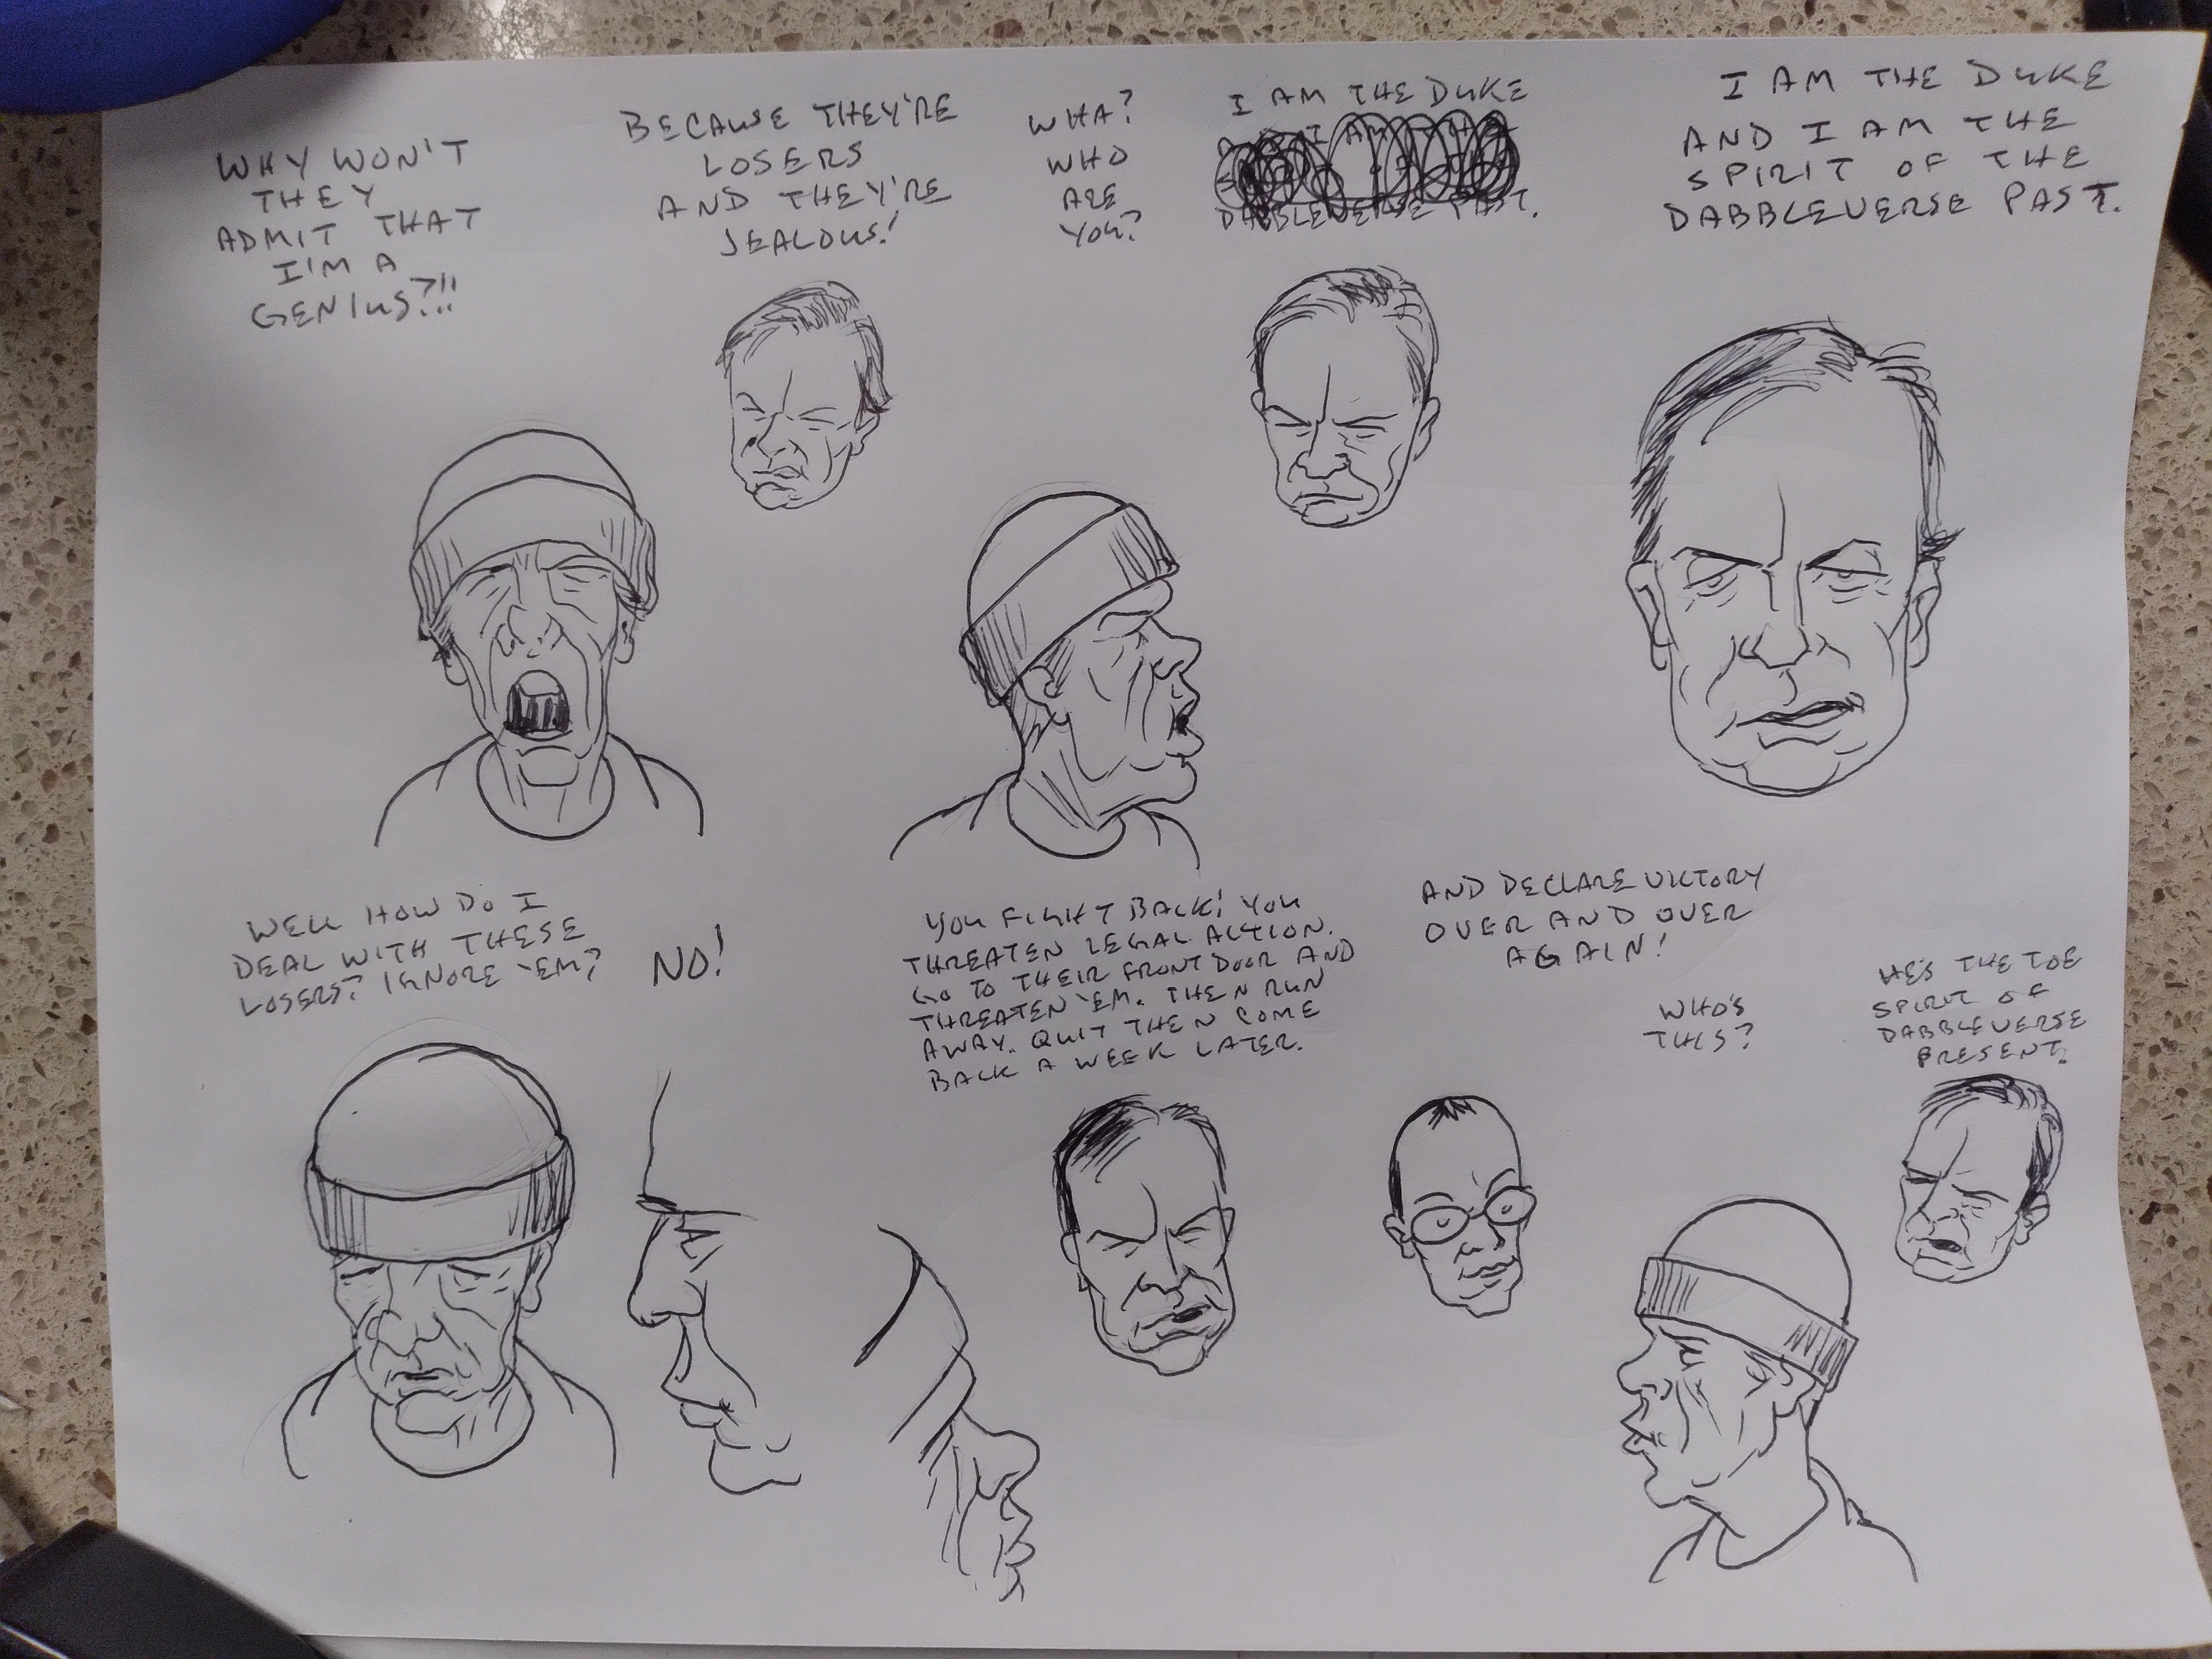 WHY WON'T
THEY
ADMIT THAT
I'M A
GENIUS?!!
BECAUSE THEY'RE
LOSERS
AND THEY'RE
JEALOUS!
WHA?
WHO
ARE
YOU?
I AM THE DUKE
I AM THE
DABBLEVERSE PAST.
I AM THE DUKE
AND I AM THE
SPIRIT OF THE
DABBLEVERSE PAST.
WELL HOW DO I
DEAL WITH THESE
LOSERS? IGNORE 'EM?
NO!
YOU FIGHT BACK! YOU
THREATEN LEGAL ACTION.
GO TO THEIR FRONT DOOR AND
THREATEN 'EM. THEN RUN
AWAY. QUIT THEN COME
BACK A WEEK LATER.
AND DECLARE VICTORY
OVER AND OVER
AGAIN!
WHO'S
THIS?
HE'S THE TOE
SPIRIT OF
DABBLEVERSE
PRESENT.